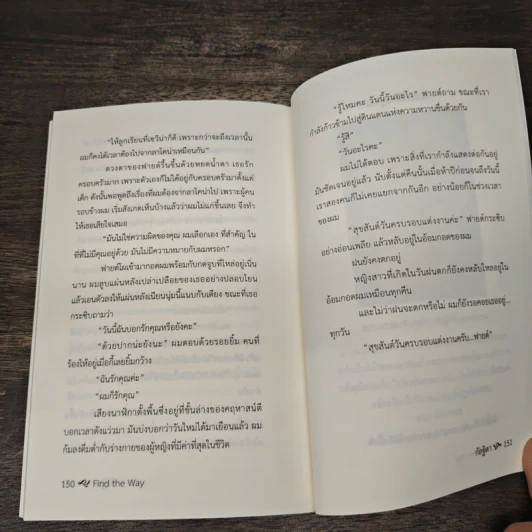 "ให้ลูกเรียนที่เชวิน่าก็ดี เพราะกว่าจะถึงเวลานั้น
ผมก็คงได้เวลาต้องไปจากลาโคน่าเหมือนกัน"
ดวงตาของฟายด์รื้นขึ้นด้วยหยดน้ำตา เธอรัก
ครอบครัวมาก เพราะตัวเองก็ไม่ได้อยู่กับครอบครัวมาตั้งแต่
เด็ก ดังนั้นพอพูดถึงเรื่องที่ผมต้องจากลาโคน่าไป เพราะผู้คน
รอบข้างผม เริ่มสังเกตเห็นบ้างแล้วว่าผมไม่แก่ขึ้นเลย จึงทำ
ให้เธอเสียใจเสมอ
"มันไม่ใช่ความผิดของคุณ ผมเลือกเอง ที่สำคัญ ใน
ที่ที่ไม่มีคุณอยู่ด้วย มันไม่มีความหมายกับผมหรอก"
ฟายด์โผเข้ามากอดผมพร้อมกับกดจูบที่ไหล่อยู่เนิ่น
นาน ผมลูบแผ่นหลังเปล่าเปลือยของเธออย่างปลอบโยน
แล้วเอนตัวลงให้แผ่นหลังเนียนนุ่มนี้แนบกับเตียง ขณะที่เธอ
กระซิบถามว่า
"วันนี้ฉันบอกรักคุณหรือยังคะ"
"ด้วยปากน่ะยังนะ" ผมตอบด้วยรอยยิ้ม คนที่
ร้องไห้อยู่เมื่อกี้เลยยิ้มกว้าง
"ฉันรักคุณค่ะ"
"ผมก็รักคุณ"
เสียงนาฬิกาตั้งพื้นซึ่งอยู่ที่ชั้นล่างของคฤหาสน์ตี
บอกเวลาดังแว่วมา มันบ่งบอกว่าวันใหม่ได้มาเยือนแล้ว ผม
ก้มลงดื่มด่ำกับร่างกายของผู้หญิงที่มีค่าที่สุดในชีวิต
150 Find the Way
"รู้ไหมคะ วันนี้วันอะไร" ฟายด์ถาม ขณะที่เรา
กำลังก้าวข้ามไปสู่ดินแดนแห่งความหวานชื่นด้วยกัน
"รู้สิ"
"วันอะไรคะ"
ผมไม่ได้ตอบ เพราะสิ่งที่เรากำลังแสดงต่อกันอยู่
มันชัดเจนอยู่แล้ว นับตั้งแต่คืนนั้นเมื่อห้าปีก่อนจนถึงวันนี้
เราสองคนก็ไม่เคยแยกจากกันอีก อย่างน้อยก็ในช่วงเวลา
ของผม
"สุขสันต์วันครบรอบแต่งงานค่ะ" ฟายด์กระซิบ
อย่างอ่อนเพลีย แล้วหลับอยู่ในอ้อมกอดของผม
ฝนยังคงตกอยู่
หญิงสาวที่เกิดในวันฝนตกก็ยังคงหลับใหลอยู่ใน
อ้อมกอดผมเหมือนทุกคืน
และไม่ว่าฝนจะตกหรือไม่ ผมก็ยังรอคอยเธออยู่...
ทุกวัน
"สุขสันต์วันครบรอบแต่งงานครับ...ฟายด์"
กัลฐิดา 151